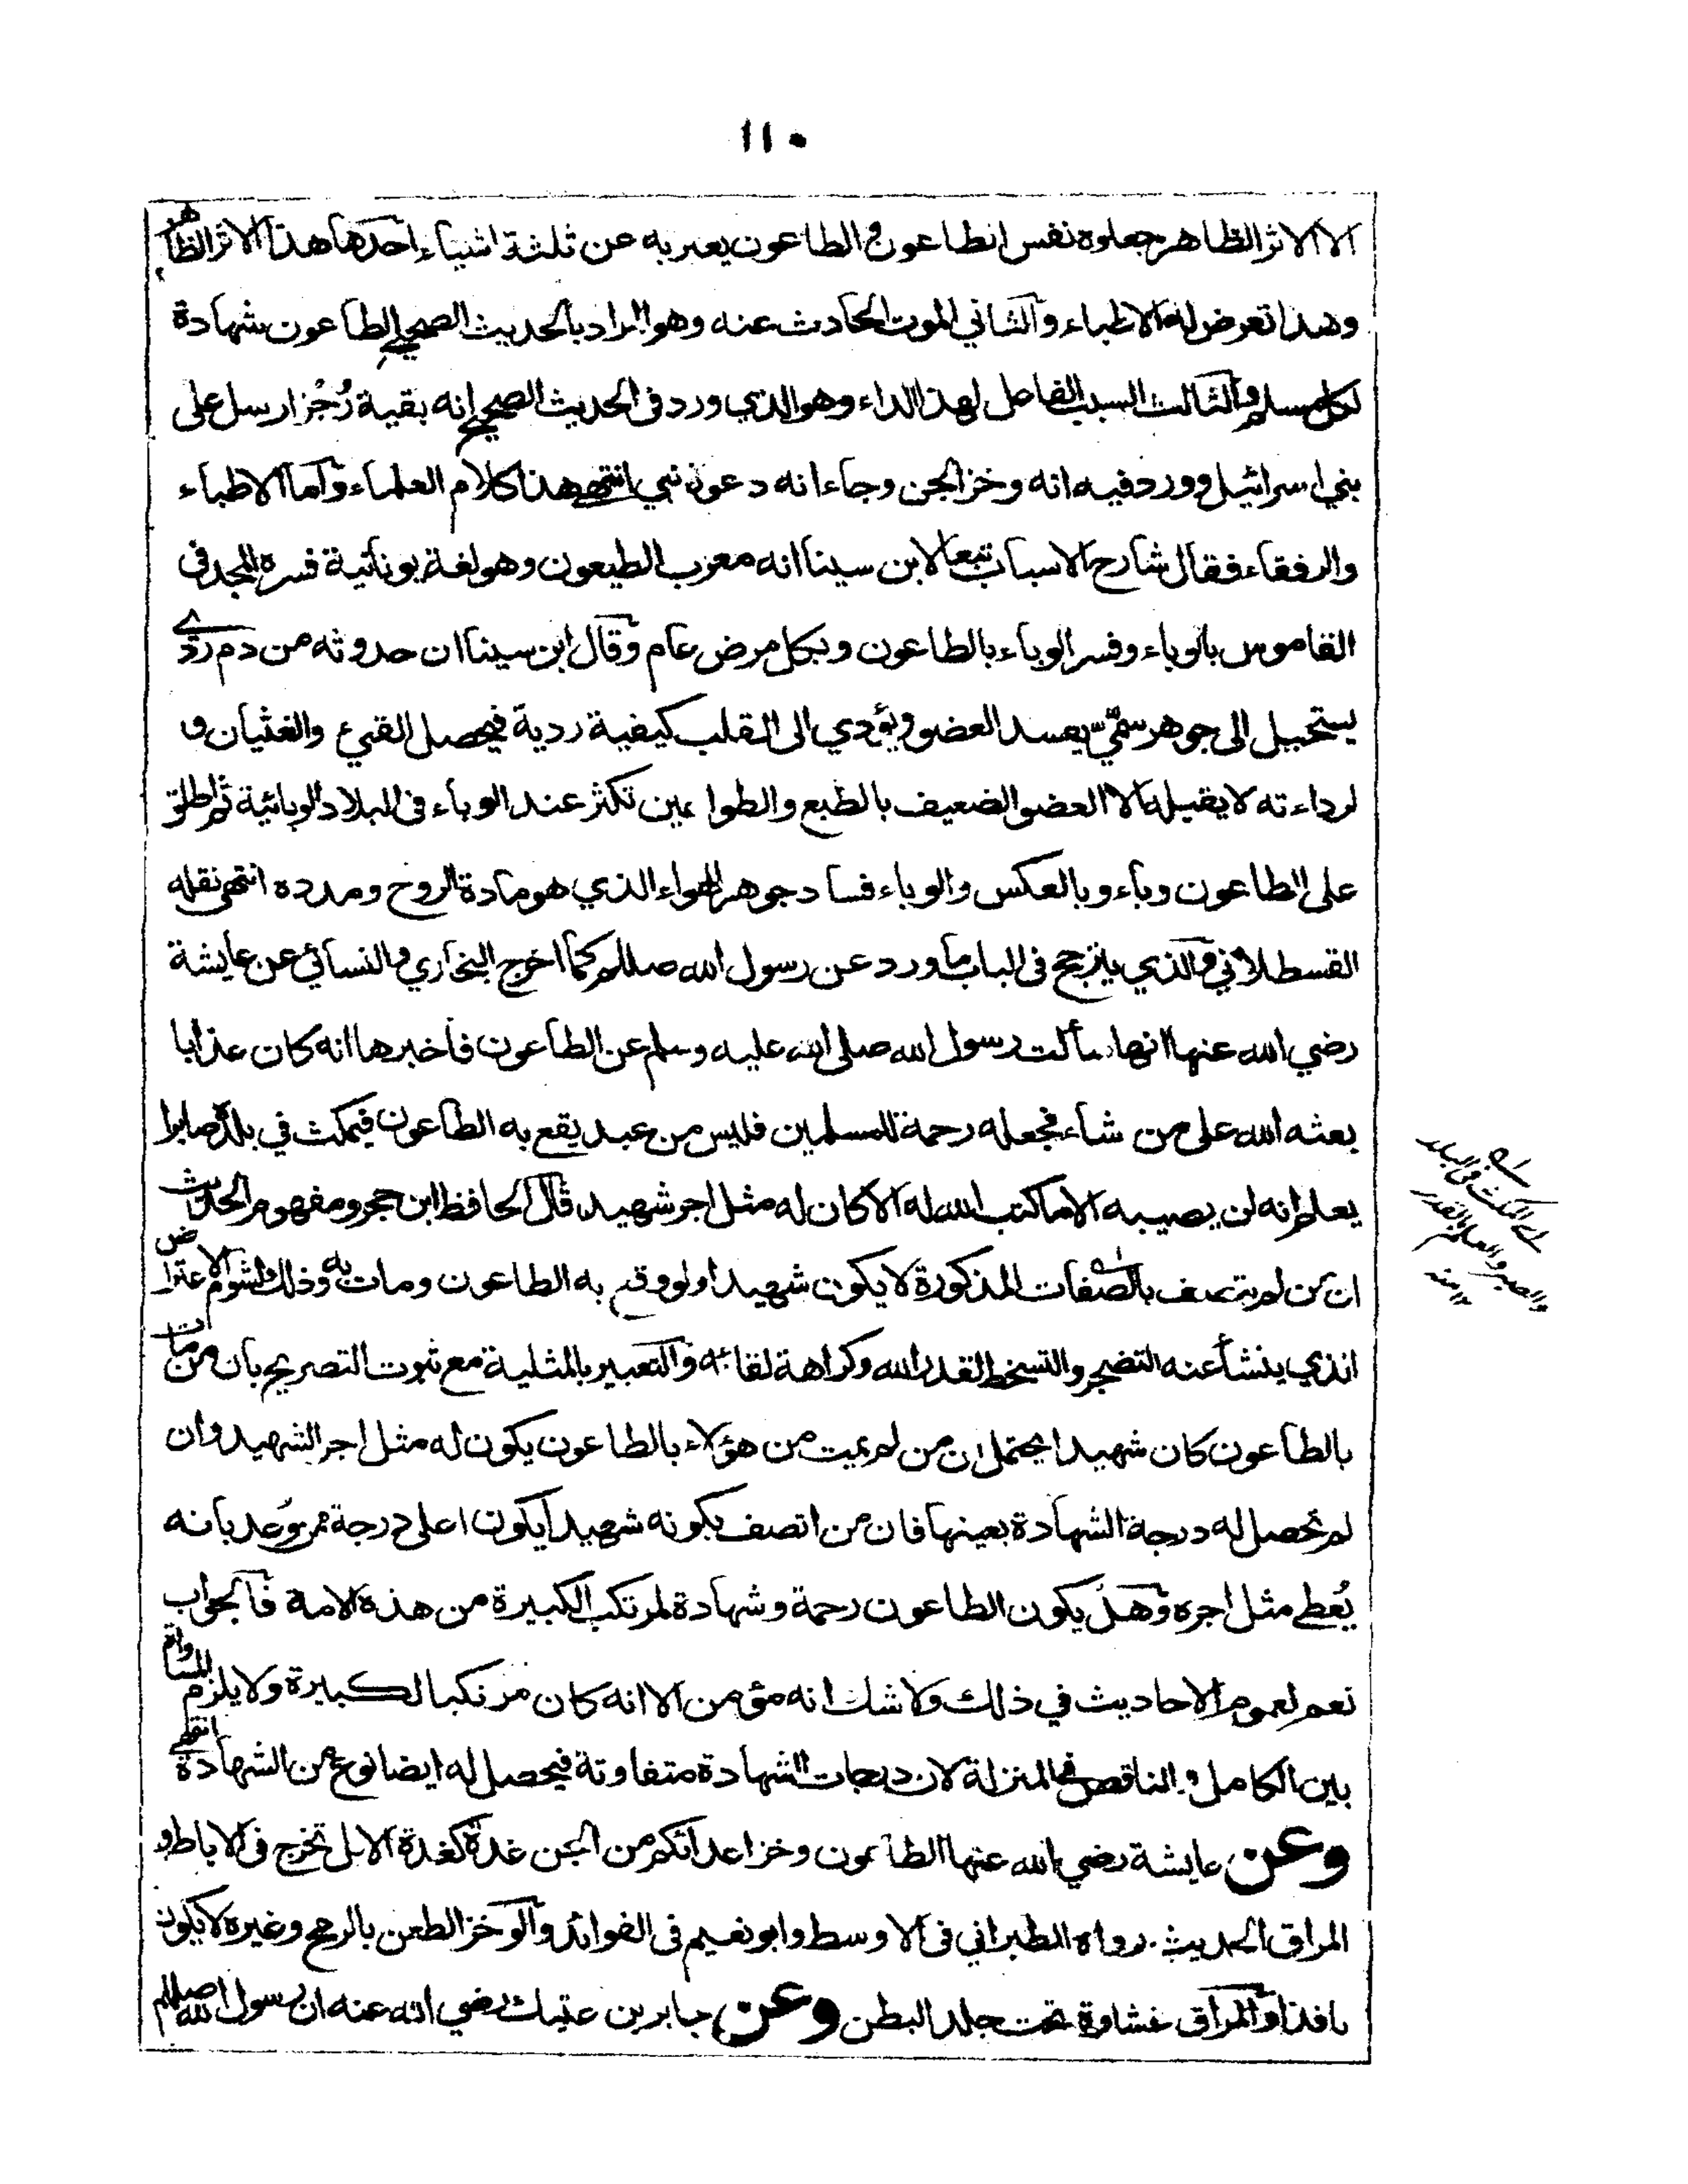 ١١٠
الا الاثر الظاهر جعلوه نفس الطاعون والطاعون يعبر به عن ثلثة اشياء احدها هذا الاثر الظاهر
وهذا تعرض له الاطباء والثاني الموت الحادث عنه وهو المراد بالحديث الصحيح الطاعون شهادة
لكل مسلم والثالث السبب الفاعل لهذا الداء وهو الذي ورد فى الحديث الصحيح انه بقية رُجُز ارسل على
بني اسرائيل وورد فيه انه وخز الجن وجاء انه دعوة نبي انتهى هذا كلام العلماء واما الاطباء
والرفقاء فقال شارح الاسباب تبعا لابن سينا انه معرب الطيعون وهو لغة يونانية فسره المجد فى
القاموس بالوباء وفسر الوباء بالطاعون وبكل مرض عام وقال ابن سينا ان حدوثه من دم ردى
يستحيل الى جوهر سمّيّ يفسد العضو ويؤدي الى القلب كيفية ردية فيحصل القيء والغثيان و
لرداءته لا يقبله الا العضو الضعيف بالطبع والطواعين تكثر عند الوباء فى البلاد الوبائية ثم اطلق
على الطاعون وباء وبالعكس والوباء فساد جوهر الهواء الذي هو مادة الروح ومدده انتهى نقله
القسطلاني والذي يترجح فى الباب ما ورد عن رسول الله صللم كما اخرج البخاري والنسائي عن عايشة
رضي الله عنها انها سألت رسول الله صلى الله عليه وسلم عن الطاعون فأخبرها انه كان عذابا
بعثه الله على من شاء فجعله رحمة للمسلمين فليس من عبد يقع به الطاعون فيمكث في بلده صابرا
يعلم انه لن يصيبه الا ما كتب الله له الا كان له مثل اجر شهيد قال الحافظ ابن حجر ومفهوم الحديث
ان من لم يتصف بالصفات المذكورة لا يكون شهيدا ولو وقع به الطاعون ومات به وذلك لشوم الاعتراض
الذي ينشأ عنه التضجر والتسخط لقدر الله وكراهة لقائه والتعبير بالمثلية مع ثبوت التصريح بان من مات
بالطاعون كان شهيدا يحتمل ان من لم يمت من هؤلاء بالطاعون يكون له مثل اجر الشهيد وان
لم تحصل له درجة الشهادة بعينها فان من اتصف بكونه شهيدا يكون اعلى درجة ممن وُعد بانه
يُعطى مثل اجره وهل يكون الطاعون رحمة وشهادة لمرتكب الكبيرة من هذه الامة فالجواب
نعم لعموم الاحاديث في ذلك ولا شك انه مؤمن الا انه كان مرتكبا لكبيرة ولا يلزم المساواة
بين الكامل والناقص فى المنزلة لان درجات الشهادة متفاوتة فيحصل له ايضا نوع من الشهادة انتهى
وعن عايشة رضي الله عنها الطاعون وخز اعدائكم من الجن غدة كغدة الابل تخرج فى الاباط و
المراق الحديث رواه الطبراني فى الاوسط وابو نعيم فى الفوائد والوخز الطعن بالرمح وغيره لا يكون
نافذا والمراق غشاوة تحت جلد البطن وعن جابر بن عتيك رضي الله عنه ان رسول الله صللم
اى المكث فى البلد
والصبر والعلم بالقدر
منه